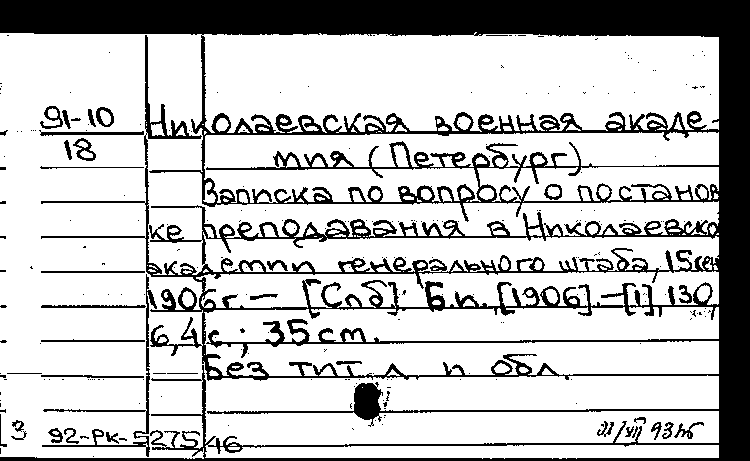 91-10
18
Николаевская военная акаде-
мия (Петербург).
Записка по вопросу о постанов
ке преподавания в Николаевско
академии генерального штаба, 15 сен
1906 г. — [Спб]: Б.и., [1906]. — [1], 130,
6,4 с.; 35 cm.
Без тит л. и обл.
3 92-РК-5275/46